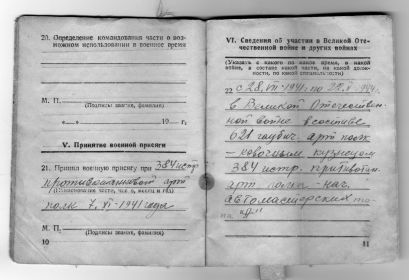 20. Определение командования части о воз-
можном использовании в военное время
М. П.
(Подпись звание, фамилия)
«    »    19    г.
V. Принятие военной присяги
21. Принял военную присягу при 384 истр.
противотанковый арт
полк 7. VI - 1941 года
М. П.
(Подпись звание, фамилия)
10
VI. Сведения об участии в Великой Оте-
чественной войне и других войнах
(Указать с какого по какое время, в какой
войне, в составе какой части, на какой долж-
ности, по какой специальности)
22 с 28. VII - 1941. по 22.
в Великой Отечествен-
ной войне в составе
621 гаубич. арт полк
кузнецом
384 истр. противотан.
арт полка - нач.
автомастерских
11